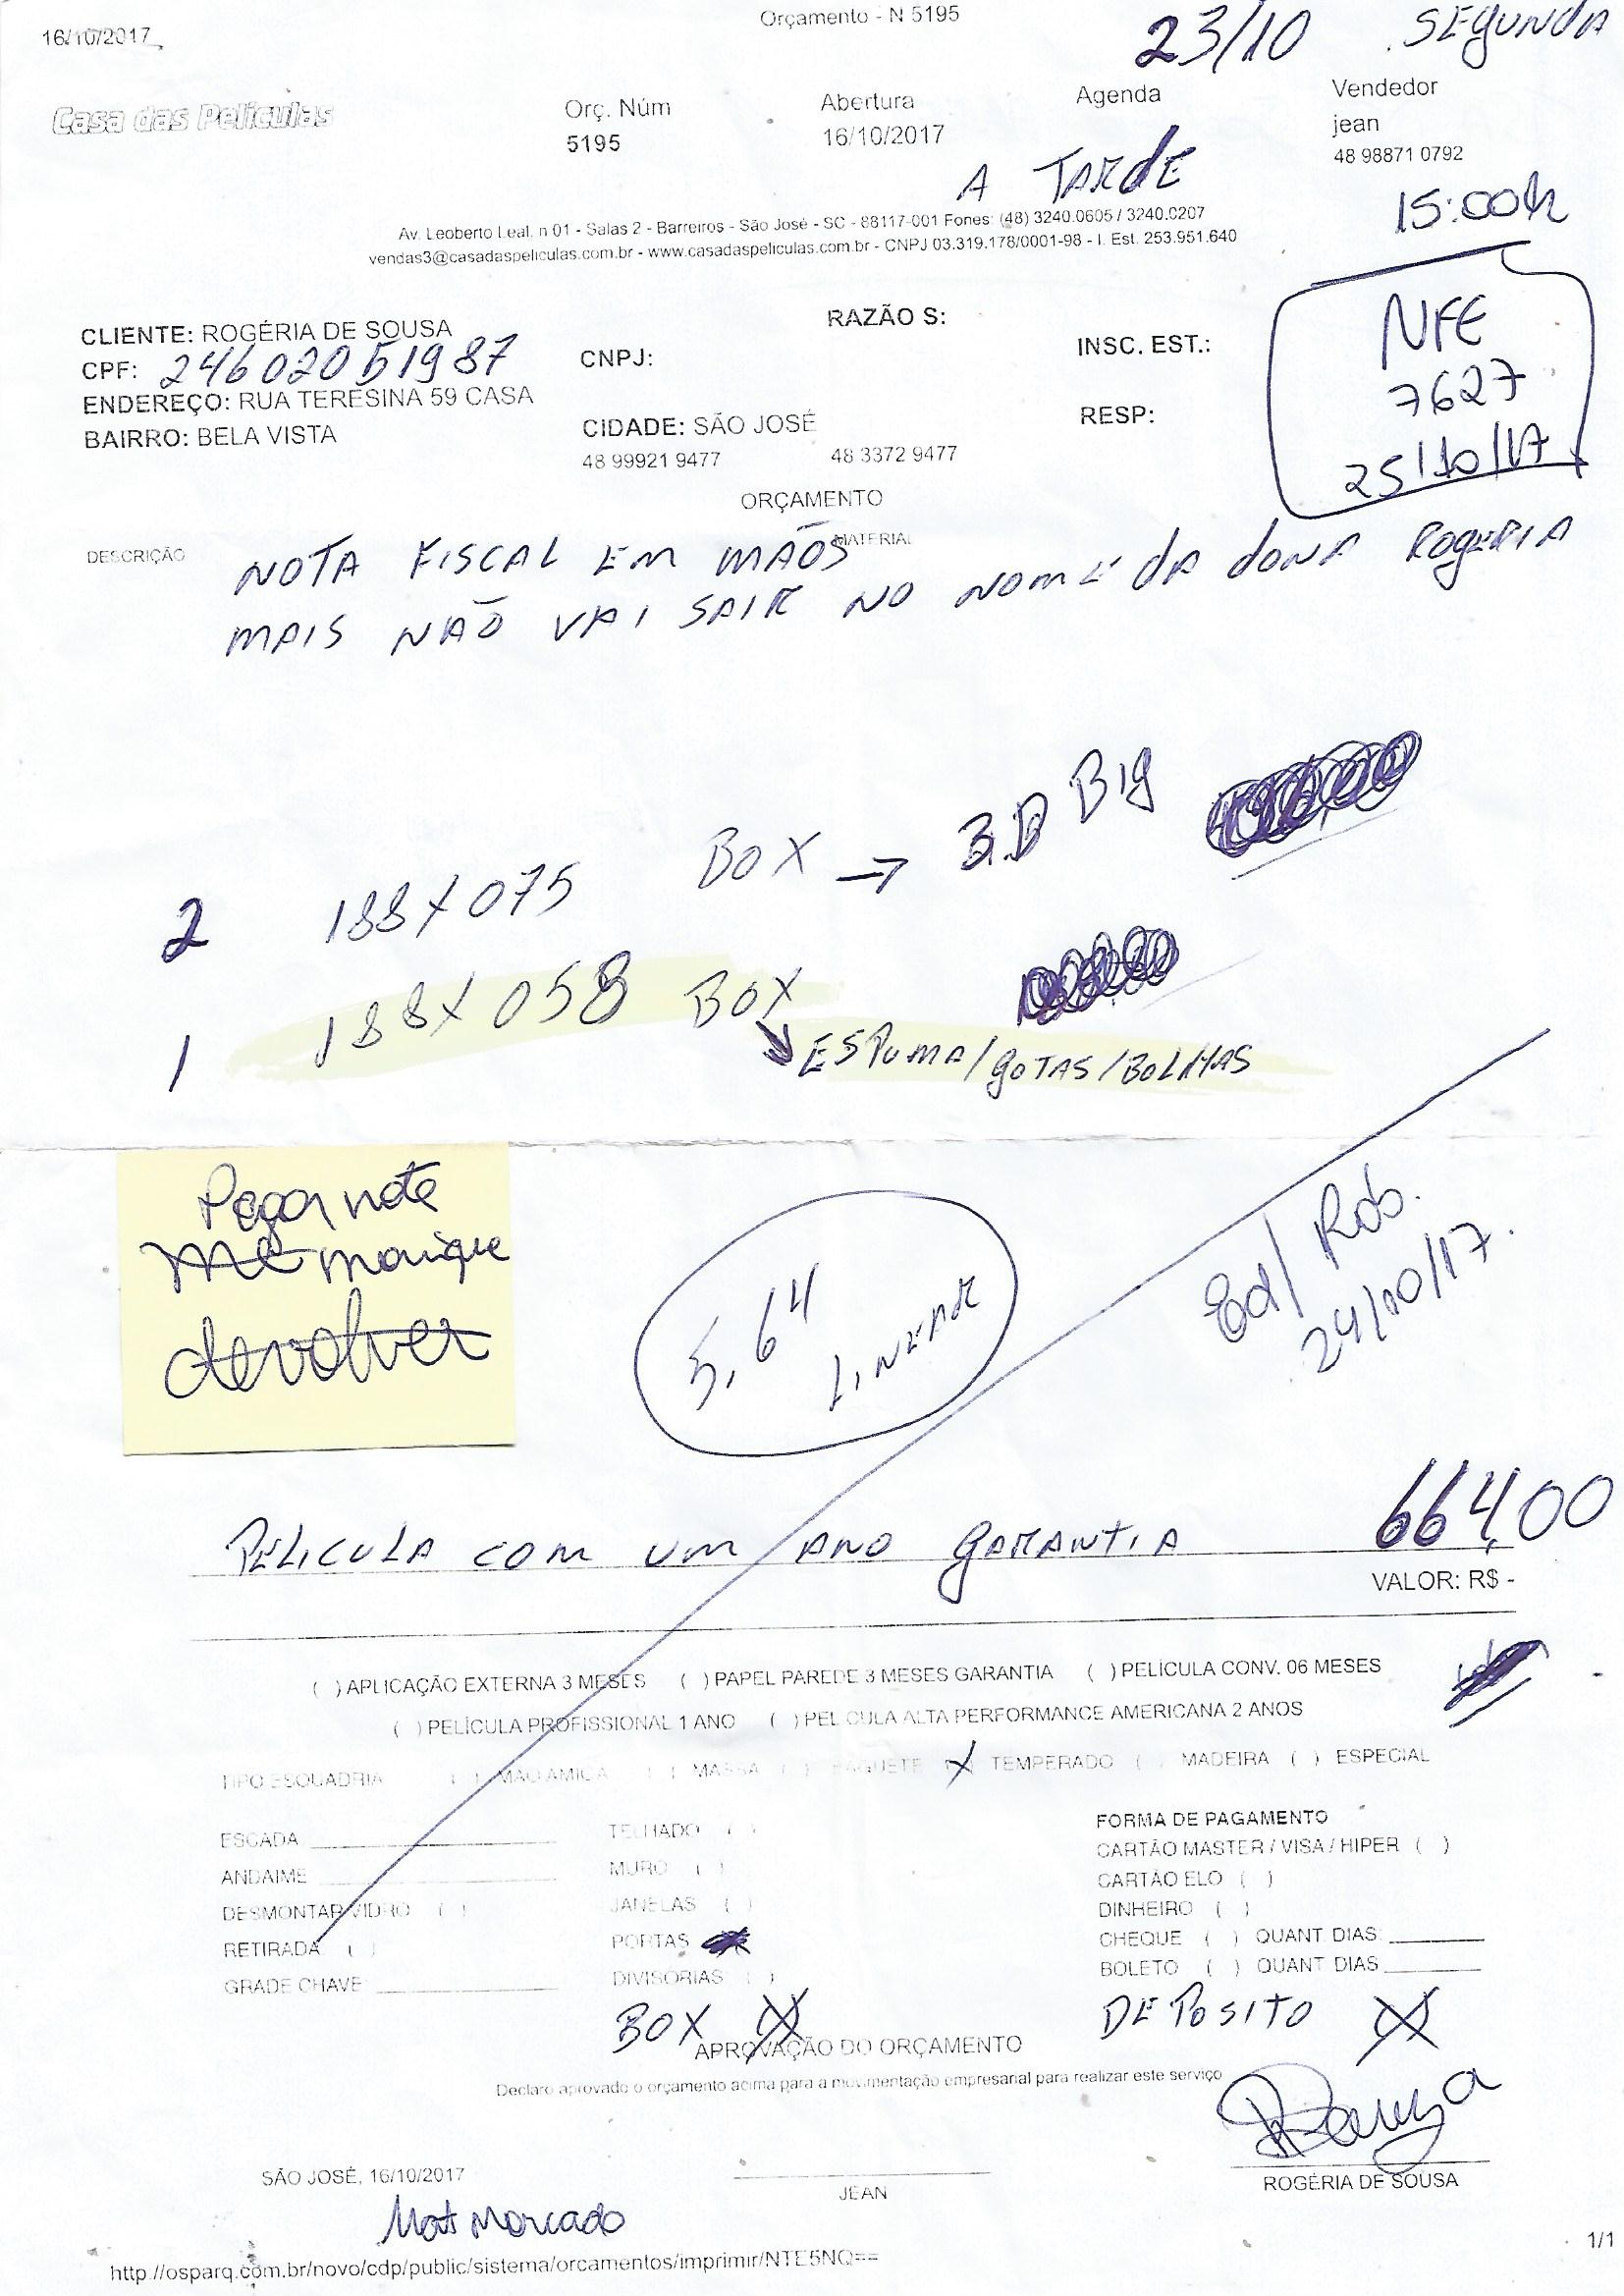 16/10/2017
Orçamento - N 5195
23/10 SEgUNdA
Casa das Películas
Orç. Núm
5195
Abertura
16/10/2017
Agenda
A TARdE
Vendedor
jean
48 98871 0792
15:00h
Av. Leoberto Leal, n 01 - Salas 2 - Barreiros - São José - SC - 88117-001 Fones: (48) 3240.0605 / 3240.0207
vendas3@casadaspeliculas.com.br - www.casadaspeliculas.com.br - CNPJ 03.319.178/0001-98 - I. Est. 253.951.640
NFE
7627
25/10/17
CLIENTE: ROGÉRIA DE SOUSA
RAZÃO S:
CPF: 24602051987
CNPJ:
INSC. EST.:
ENDEREÇO: RUA TERESINA 59 CASA
BAIRRO: BELA VISTA
CIDADE: SÃO JOSÉ
RESP:
48 99921 9477
48 3372 9477
ORÇAMENTO
DESCRIÇÃO
MATERIAL
NOTA FISCAL EM MÃOS
MAIS NÃO VAI SAIR NO NOME dA dONA ROgERIA
2 188X075 BOX → 3.D BIg
1 188X058 BOX
ESPUMA/gOTAS/BOLHAS
Pegar nota
monique
devolver
5,64
LINEAR
Ed/ Rob.
24/10/17.
PELICULA COM UM ANO gARANTIA 664,00
VALOR: R$ -
( ) APLICAÇÃO EXTERNA 3 MESES ( ) PAPEL PAREDE 3 MESES GARANTIA ( ) PELÍCULA CONV. 06 MESES
( ) PELÍCULA PROFISSIONAL 1 ANO ( ) PELÍCULA ALTA PERFORMANCE AMERICANA 2 ANOS
TIPO ESQUADRIA ( ) MAO AMIGA ( ) MASSA ( ) BAGUETE (X) TEMPERADO ( ) MADEIRA ( ) ESPECIAL
ESCADA
ANDAIME
DESMONTAR VIDRO ( )
RETIRADA ( )
GRADE CHAVE
TELHADO ( )
MURO ( )
JANELAS ( )
PORTAS
DIVISÓRIAS ( )
BOX (X)
FORMA DE PAGAMENTO
CARTÃO MASTER / VISA / HIPER ( )
CARTÃO ELO ( )
DINHEIRO ( )
CHEQUE ( ) QUANT DIAS:
BOLETO ( ) QUANT DIAS
DEPOSITO (X)
APROVAÇÃO DO ORÇAMENTO
Declaro aprovado o orçamento acima para a movimentação empresarial para realizar este serviço
SÃO JOSÉ, 16/10/2017
JEAN
ROGÉRIA DE SOUSA
http://osparq.com.br/novo/cdp/public/sistema/orcamentos/imprimir/NTE5NQ==
1/1